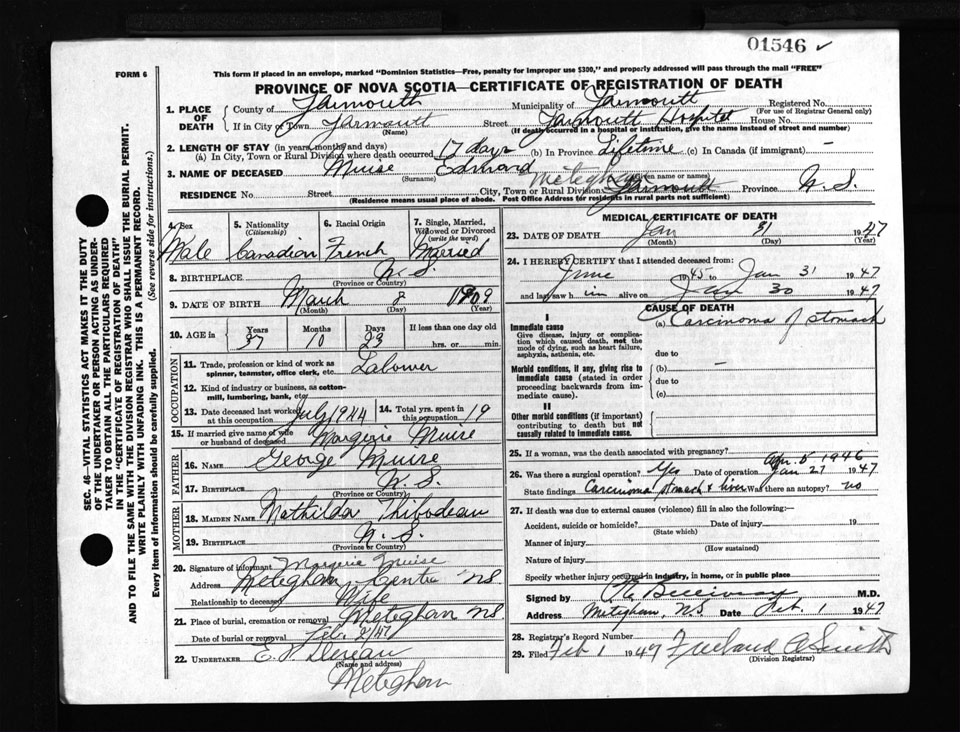 01546 ✓
FORM 6
This form if placed in an envelope, marked "Dominion Statistics—Free, penalty for improper use $300," and properly addressed will pass through the mail "FREE"
PROVINCE OF NOVA SCOTIA—CERTIFICATE OF REGISTRATION OF DEATH
SEC. 46—VITAL STATISTICS ACT MAKES IT THE DUTY
OF THE UNDERTAKER OR PERSON ACTING AS UNDER-
TAKER TO OBTAIN ALL THE PARTICULARS REQUIRED
IN THE "CERTIFICATE OF REGISTRATION OF DEATH"
AND TO FILE THE SAME WITH THE DIVISION REGISTRAR WHO SHALL ISSUE THE BURIAL PERMIT.
WRITE PLAINLY WITH UNFADING INK. THIS IS A PERMANENT RECORD.
Every item of information should be carefully supplied. (See reverse side for instructions.)
1. PLACE OF DEATH
County of Yarmouth Municipality of Yarmouth Registered No.
(For use of Registrar General only)
If in City or Town Yarmouth Street Yarmouth Hospital House No.
(Name) (If death occurred in a hospital or institution, give the name instead of street and number)
2. LENGTH OF STAY (in years, months and days)
(a) In City, Town or Rural Division where death occurred 17 days (b) In Province Lifetime (c) In Canada (if immigrant) —
3. NAME OF DECEASED Muise Edmond
(Surname) (Given name or names)
Meteghan
RESIDENCE No. Street City, Town or Rural Division Yarmouth Province N.S.
(Residence means usual place of abode. Post Office Address for residents in rural parts not sufficient)
4. Sex
Male
5. Nationality
(Citizenship)
Canadian
6. Racial Origin
French
7. Single, Married,
Widowed or Divorced
(write the word)
Married
8. BIRTHPLACE N.S.
(Province or Country)
9. DATE OF BIRTH March 8 1909
(Month) (Day) (Year)
10. AGE in
Years Months Days If less than one day old
37 10 23 hrs. or min.
OCCUPATION
11. Trade, profession or kind of work as
spinner, teamster, office clerk, etc. Labourer
12. Kind of industry or business, as cotton-
mill, lumbering, bank, etc.
13. Date deceased last worked
at this occupation July 1944
14. Total yrs. spent in
this occupation 19
15. If married give name of wife
or husband of deceased Margerie Muise
FATHER
16. NAME George Muise
17. BIRTHPLACE N.S.
(Province or Country)
MOTHER
18. MAIDEN NAME Mathilda Thibodeau
19. BIRTHPLACE N.S.
(Province or Country)
20. Signature of informant Margerie Muise
Address Meteghan Centre NS
Relationship to deceased Wife
21. Place of burial, cremation or removal Meteghan NS.
Date of burial or removal Feb. 2/47
22. UNDERTAKER
(Name and address)
Meteghan
MEDICAL CERTIFICATE OF DEATH
23. DATE OF DEATH Jan 31 1947
(Month) (Day) (Year)
24. I HEREBY CERTIFY that I attended deceased from:
June 1945 to Jan 31 1947
and last saw him alive on Jan 30 1947
CAUSE OF DEATH
I
Immediate cause
Give disease, injury or complica-
tion which caused death, not the
mode of dying, such as heart failure,
asphyxia, asthenia, etc.
(a) Carcinoma of stomach
due to
Morbid conditions, if any, giving rise to
immediate cause (stated in order
proceeding backwards from im-
mediate cause).
(b) —
due to
(c)
II
Other morbid conditions (if important)
contributing to death but not
causally related to immediate cause.
25. If a woman, was the death associated with pregnancy?
Apr. 5 1946
26. Was there a surgical operation? Yes Date of operation Jan 27 1947
State findings Carcinoma stomach & liver Was there an autopsy? no
27. If death was due to external causes (violence) fill in also the following:—
Accident, suicide or homicide? Date of injury 19
(State which)
Manner of injury
(How sustained)
Nature of injury
Specify whether injury occurred in industry, in home, or in public place
Signed by M.D.
Address Meteghan, N.S. Date Feb. 1 1947
28. Registrar's Record Number
29. Filed Feb 1 1947 Smith
(Division Registrar)